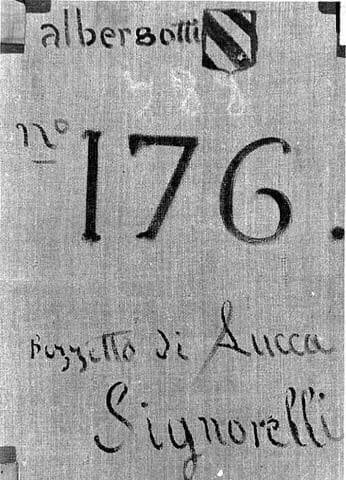 albergotti
nº 176.
Bozzetto di Lucca
Signorelli